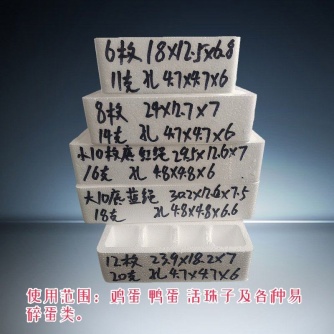 6枚 18X12.5X6.8
11克 孔 4.7X4.7X6
8枚 24X12.7X7
14克 孔 4.7X4.7X6
小10枚底红绳 29.5X12.6X7
16克 孔 4.8X4.8X6
大10底蓝绳 30.2X12.6X7.5
18克 孔 4.8X4.8X6.6
12枚 23.9X18.2X7
20克 孔 4.7X4.7X6
使用范围：鸡蛋 鸭蛋 活珠子及各种易
碎蛋类。